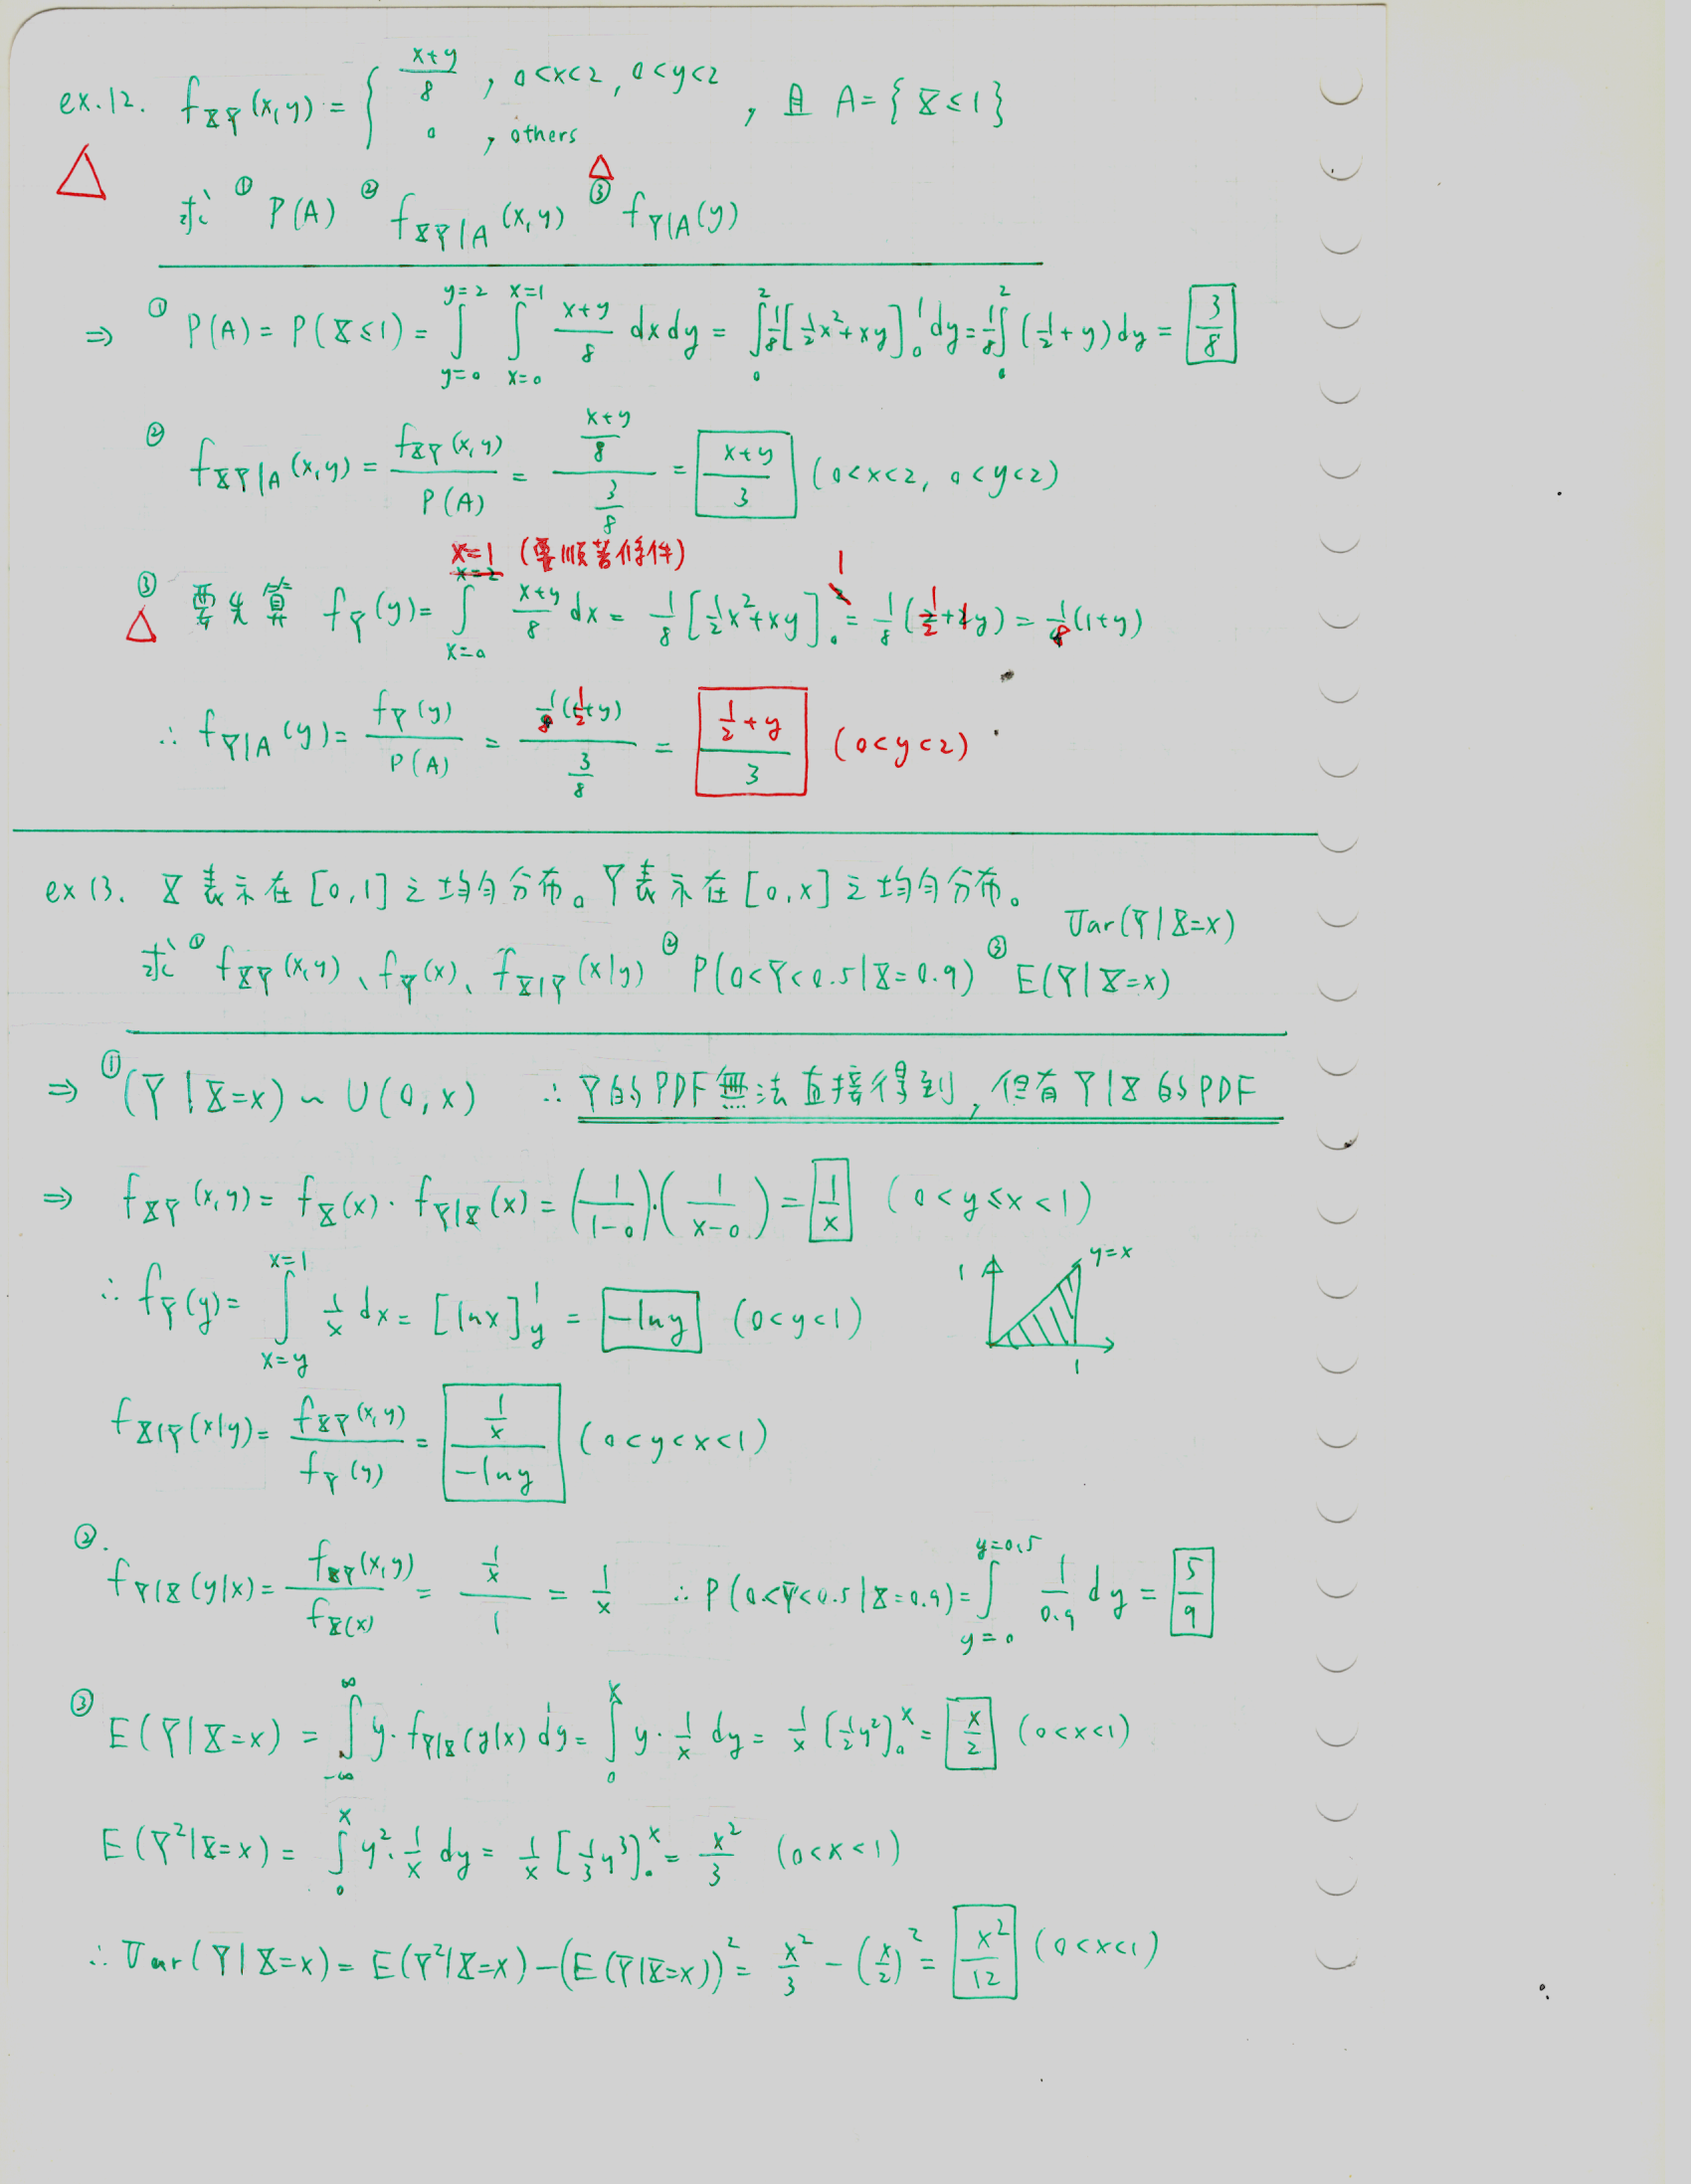 ex.12. f_XY(x,y) = { (x+y)/8 , 0<x<2, 0<y<2 ; 0 , others , 且 A={X≤1}
求 ① P(A) ② f_XY|A(x,y) △③ f_Y|A(y)
⇒ ① P(A) = P(X≤1) = ∫_{y=0}^{y=2} ∫_{x=0}^{x=1} (x+y)/8 dxdy = ∫_0^2 1/8[1/2x²+xy]_0^1 dy = 1/8∫_0^2 (1/2+y)dy = 3/8
② f_XY|A(x,y) = f_XY(x,y)/P(A) = ((x+y)/8)/(3/8) = (x+y)/3 (0<x<2, 0<y<2)
x=1 (要順著條件)
③ △ 要先算 f_Y(y) = ∫_{x=0} (x+y)/8 dx = 1/8[1/2x²+xy]_0^1 = 1/8(1/2+1y) = 1/8(1+y)
∴ f_Y|A(y) = f_Y(y)/P(A) = (1/8(1/2+y))/(3/8) = (1/2+y)/3 (0<y<2)
ex13. X 表示在[0,1]之均勻分布。Y表示在[0,x]之均勻分布。
Var(Y|X=x)
求 ① f_XY(x,y)、f_Y(x)、f_X|Y(x|y) ② P(0<Y<0.5|X=0.9) ③ E(Y|X=x)
⇒ ① (Y|X=x) ~ U(0,x) ∴ Y的PDF無法直接得到, 但有Y|X的PDF
⇒ f_XY(x,y) = f_X(x)·f_Y|X(x) = (1/(1-0))·(1/(x-0)) = 1/x (0<y≤x<1)
∴ f_Y(y) = ∫_{x=y}^{x=1} 1/x dx = [lnx]_y^1 = -lny (0<y<1)
1 y=x 1
f_X|Y(x|y) = f_XY(x,y)/f_Y(y) = (1/x)/(-lny) (0<y<x<1)
②. f_Y|X(y|x) = f_XY(x,y)/f_X(x) = (1/x)/1 = 1/x ∴ P(0<Y<0.5|X=0.9) = ∫_{y=0}^{y=0.5} 1/0.9 dy = 5/9
③ E(Y|X=x) = ∫_{-∞}^{∞} y·f_Y|X(y|x) dy = ∫_0^x y·1/x dy = 1/x(1/2y²)_0^x = x/2 (0<x<1)
E(Y²|X=x) = ∫_0^x y²·1/x dy = 1/x[1/3y³]_0^x = x²/3 (0<x<1)
∴ Var(Y|X=x) = E(Y²|X=x)-(E(Y|X=x))² = x²/3 - (x/2)² = x²/12 (0<x<1)